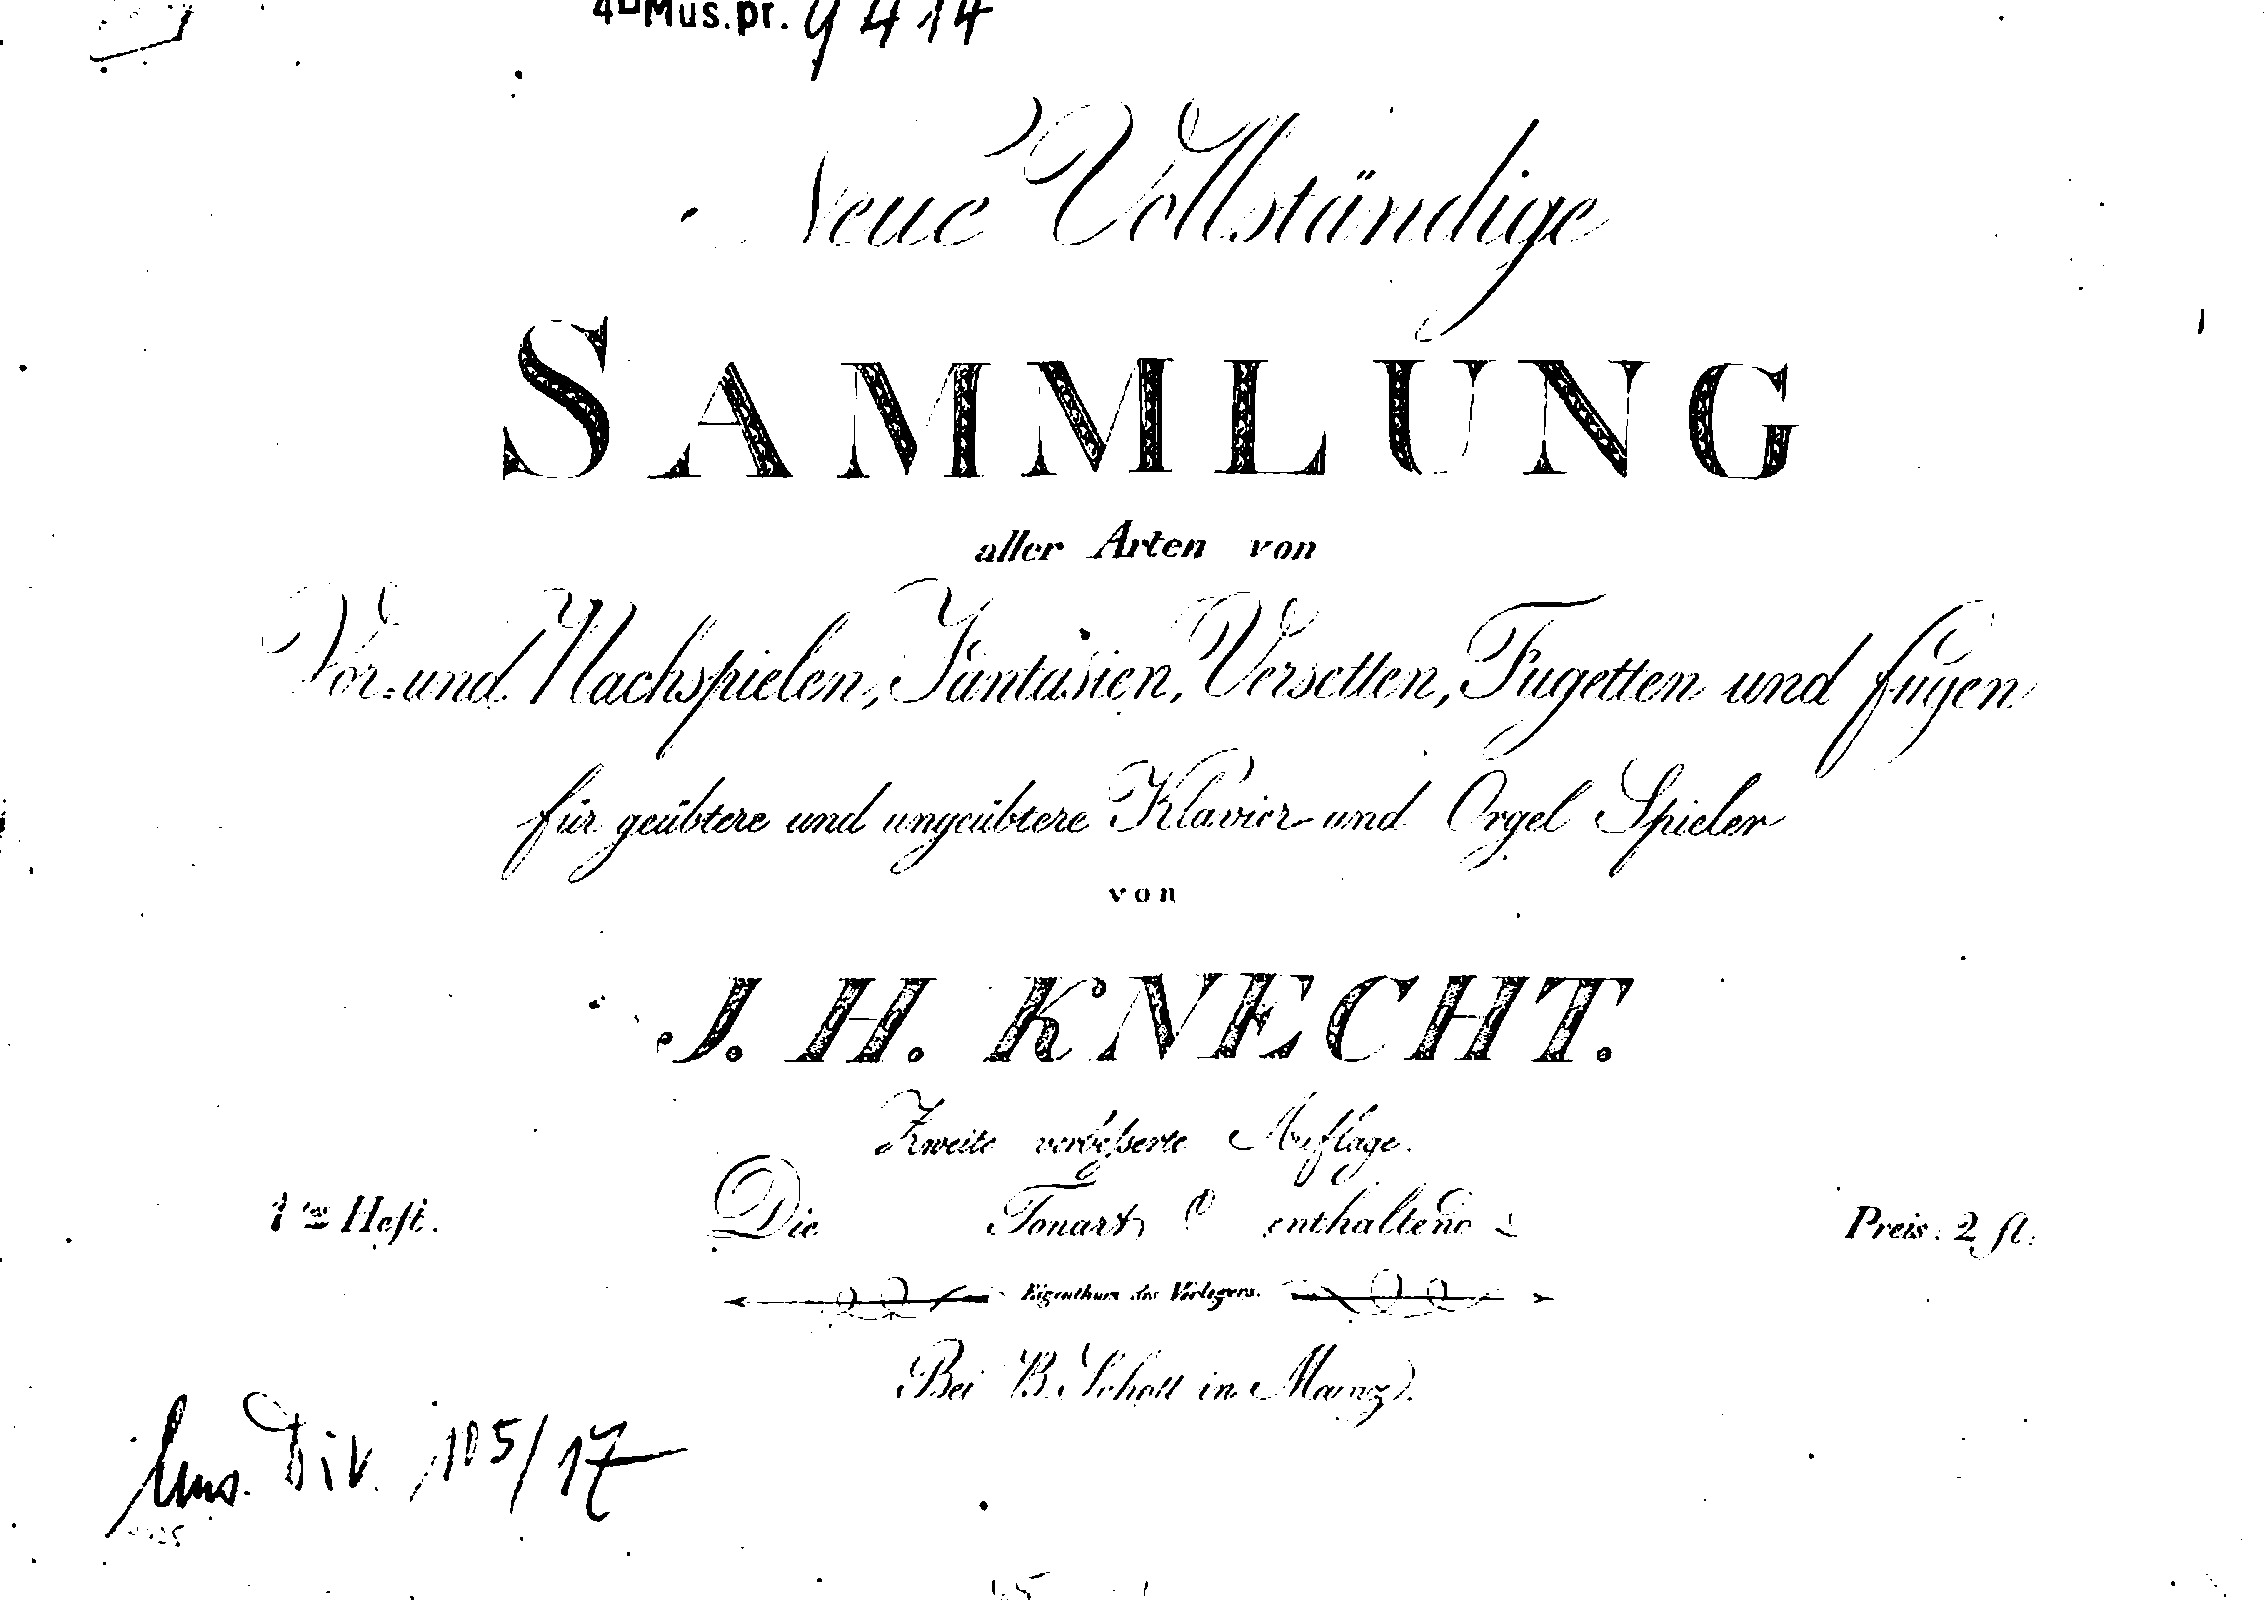 4° Mus.pr. 9414
Neue Vollständige
SAMMLUNG
aller Arten von
Vor- und Nachspielen, Fantasien, Versetten, Fugetten und fugen
für geübtere und ungeübtere Klavier und Orgel Spieler
von
J. H. KNECHT.
Zweite verbeßerte Auflage.
1tes Heft. Die Tonart C enthaltend Preis. 2 fl.
Eigenthum des Verlegers.
Bei B. Schott in Mainz.
Mus. Div. 105/17